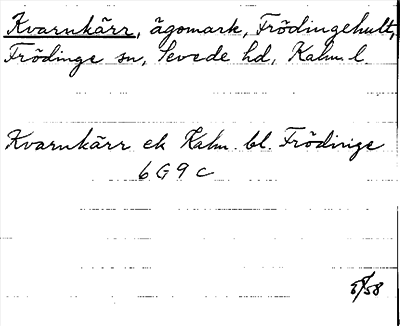 Kvarnkärr, ägomark, Frödingehult,
Frödinge sn, Sevede hd, Kalm. l.
Kvarnkärr ek Kalm. bl. Frödinge
6 G 9 c